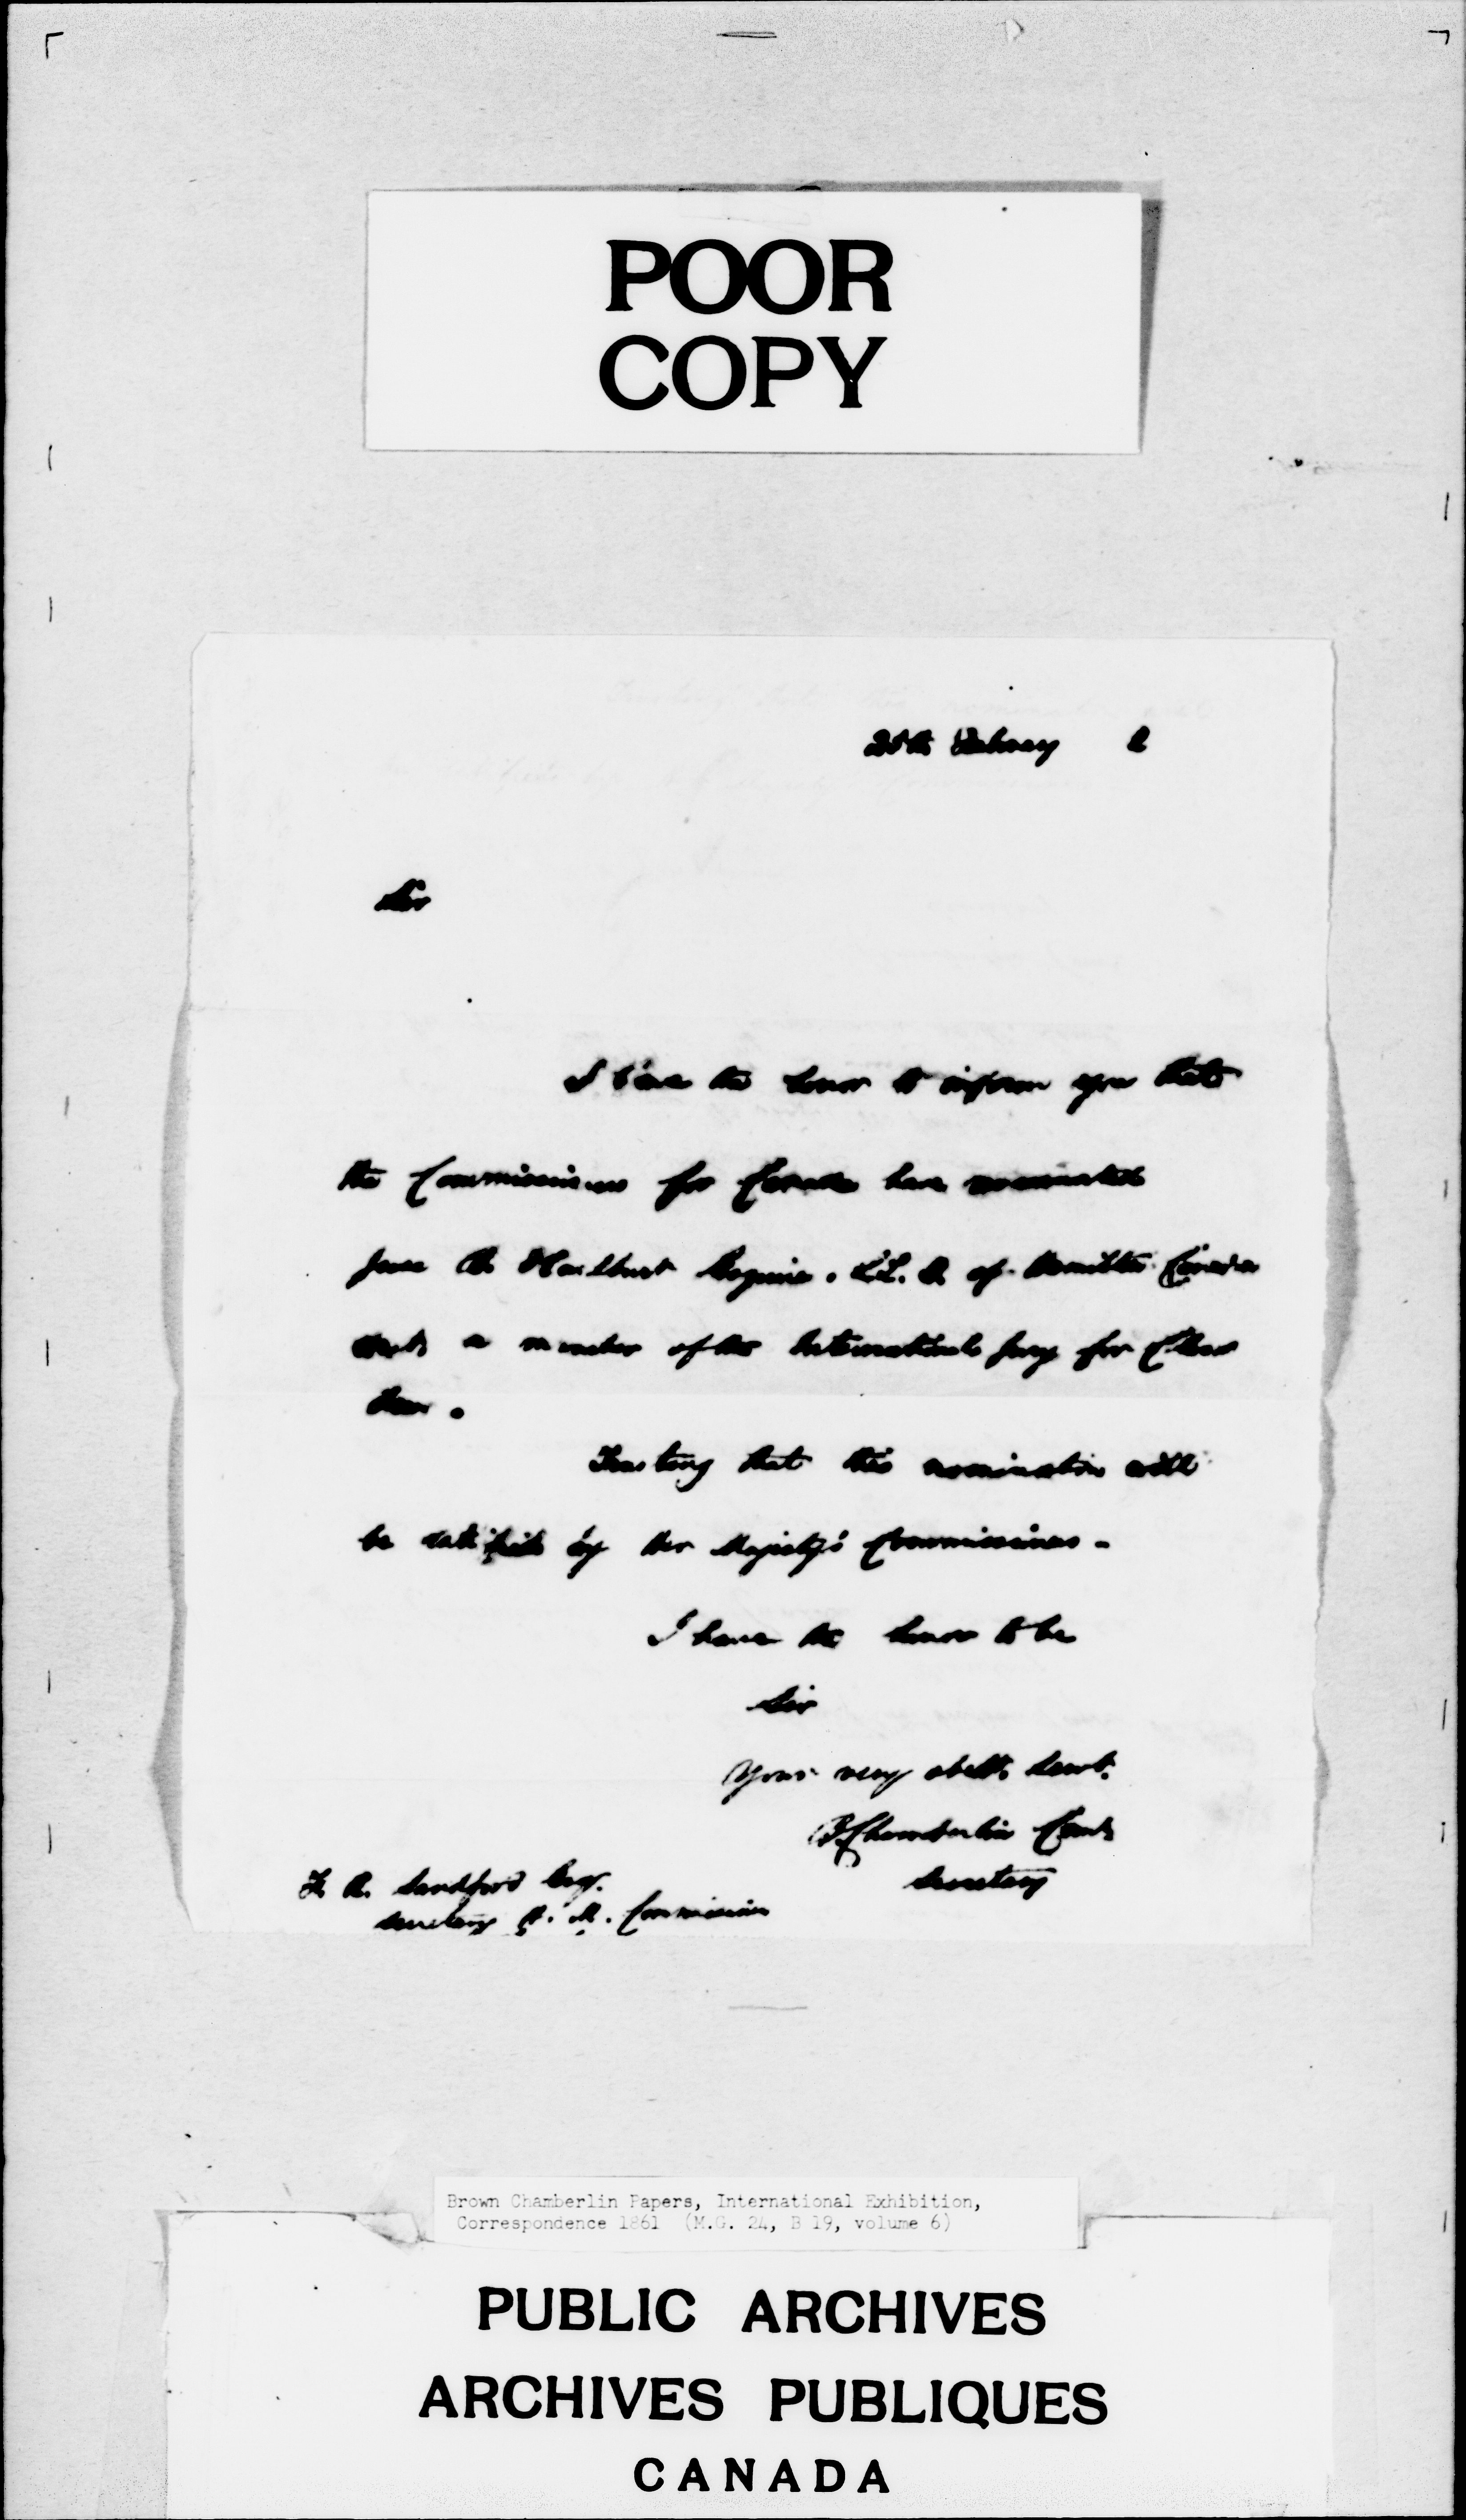 POOR
COPY
February 2
Sir
I have the honor to inform you that
the Commissioners for Canada have nominated
B. Hurlburt Esquire. LL. D. of Hamilton Canada
West a member of the International Jury for Class
Trusting that this nomination will
be ratified by Her Majesty's Commissioners -
I have the honor to be
Sir
Your very obedt. Servt.
B Chamberlin
Secretary
F. R. Sandford Esq.
Secretary H. M. Commission
Brown Chamberlin Papers, International Exhibition,
Correspondence 1861 (M.G. 24, B 19, volume 6)
PUBLIC ARCHIVES
ARCHIVES PUBLIQUES
CANADA